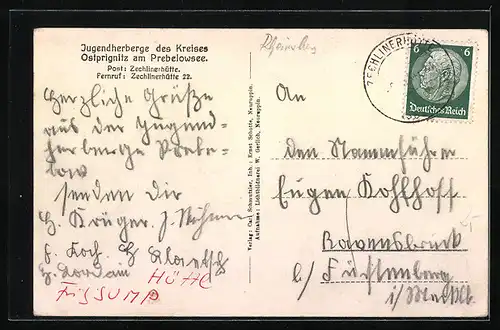 Jugendherberge des Kreises
Ostprignitz am Prebelowsee.
Post: Zechlinerhütte.
Fernruf: Zechlinerhütte 22.
Herzliche Grüße
aus der Jugend-
herberge Prebe-
low
senden Dir
H. Krüger. J.
F. Koch. H.
HÜTTE
Verlag: Carl Schmutzler, Inh.: Ernst Schotte, Neuruppin.
Aufnahme: Lichtbildnerei W. Gerlich, Neuruppin.
Rheinsberg
ZECHLINERHÜTTE
6 6
Deutsches Reich
An
den Stammführer
Eugen Kohlhoff
Ravensbrück
b/ Fürstenberg
i/Mecklb.